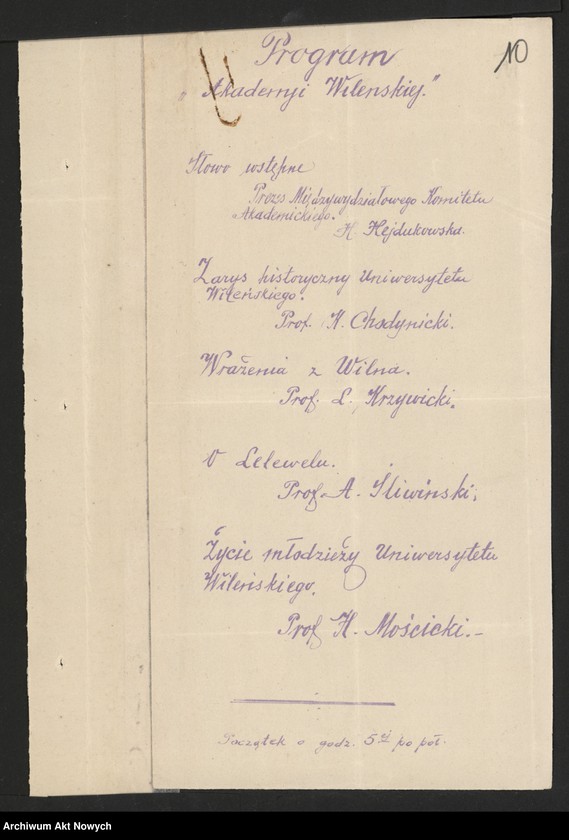 10
Program
"Akademji Wileńskiej."
Słowo wstępne
Prezes Międzywydziałowego Komitetu
Akademickiego.
H. Hejdukowska.
Zarys historyczny Uniwersytetu
Wileńskiego.
Prof. K. Chodynicki.
Wrażenia z Wilna.
Prof. L. Krzywicki.
O Lelewelu.
Prof. A. Śliwiński.
Życie młodzieży Uniwersytetu
Wileńskiego.
Prof H. Mościcki.-
Początek o godz. 5ej po poł.
Archiwum Akt Nowych